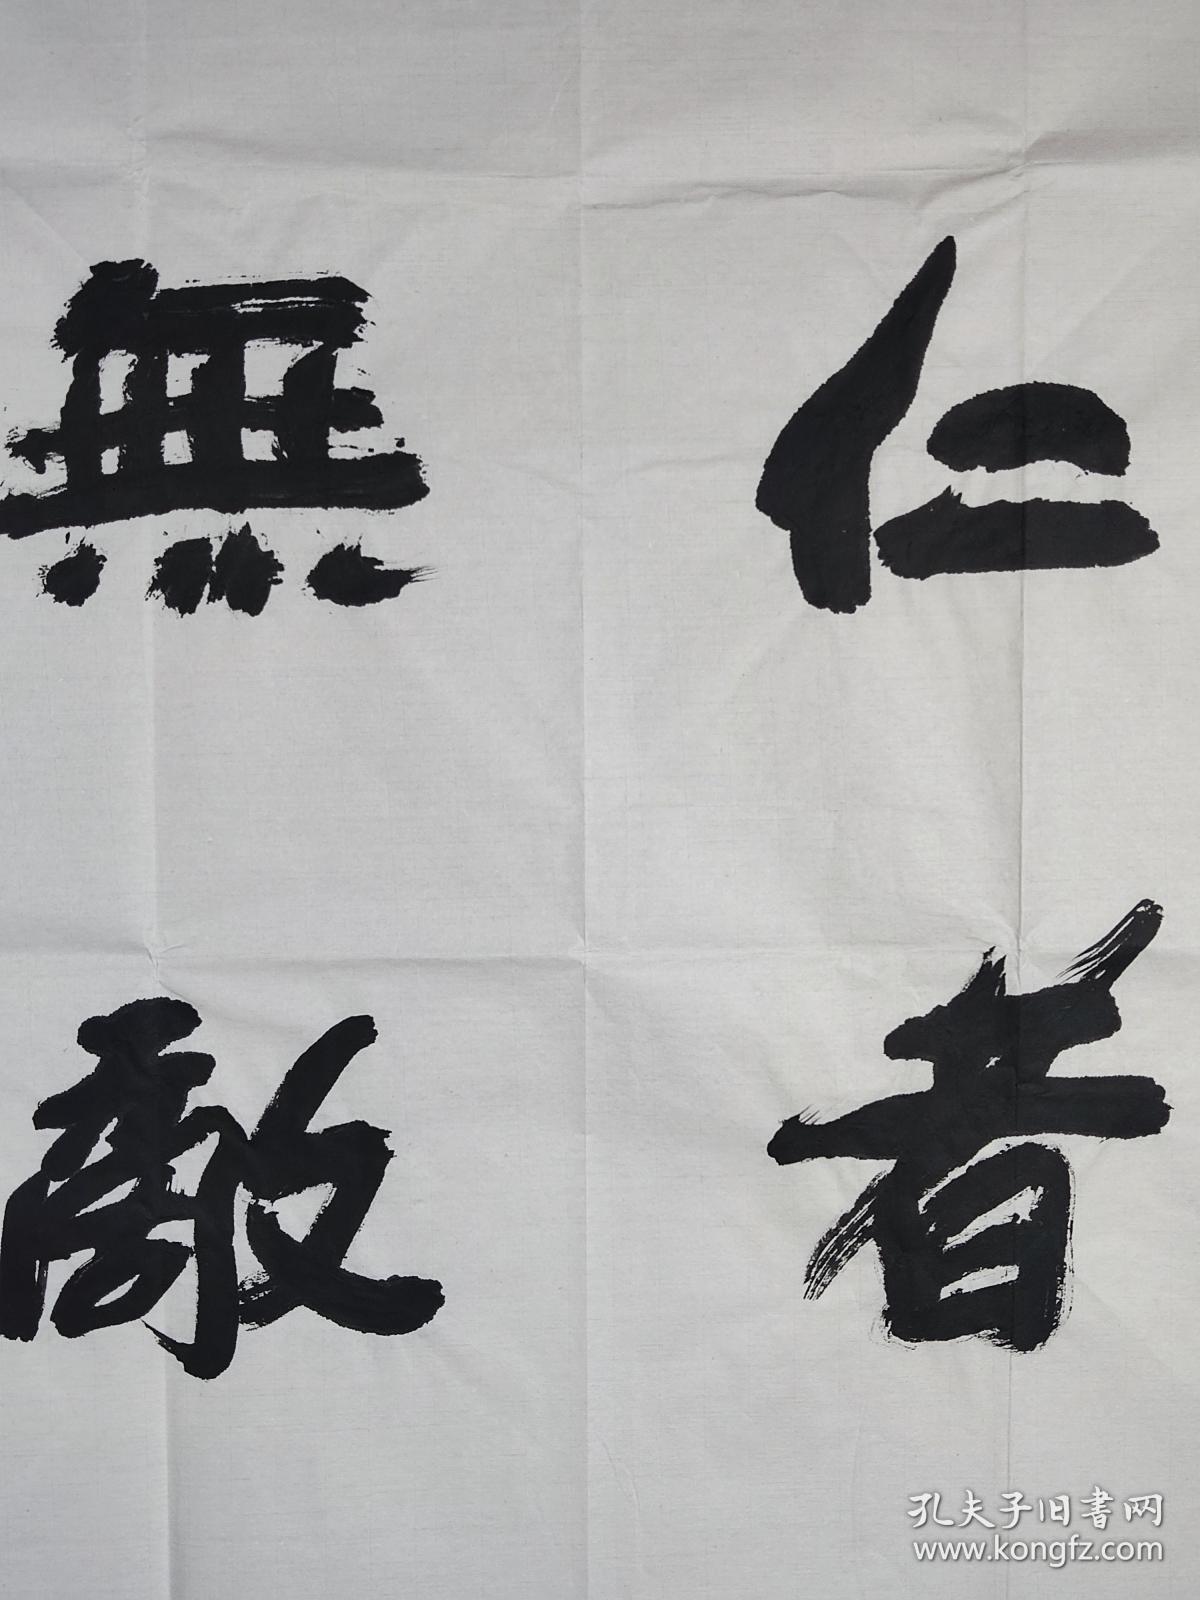 仁者
無敵
孔夫子旧书网
www.kongfz.com